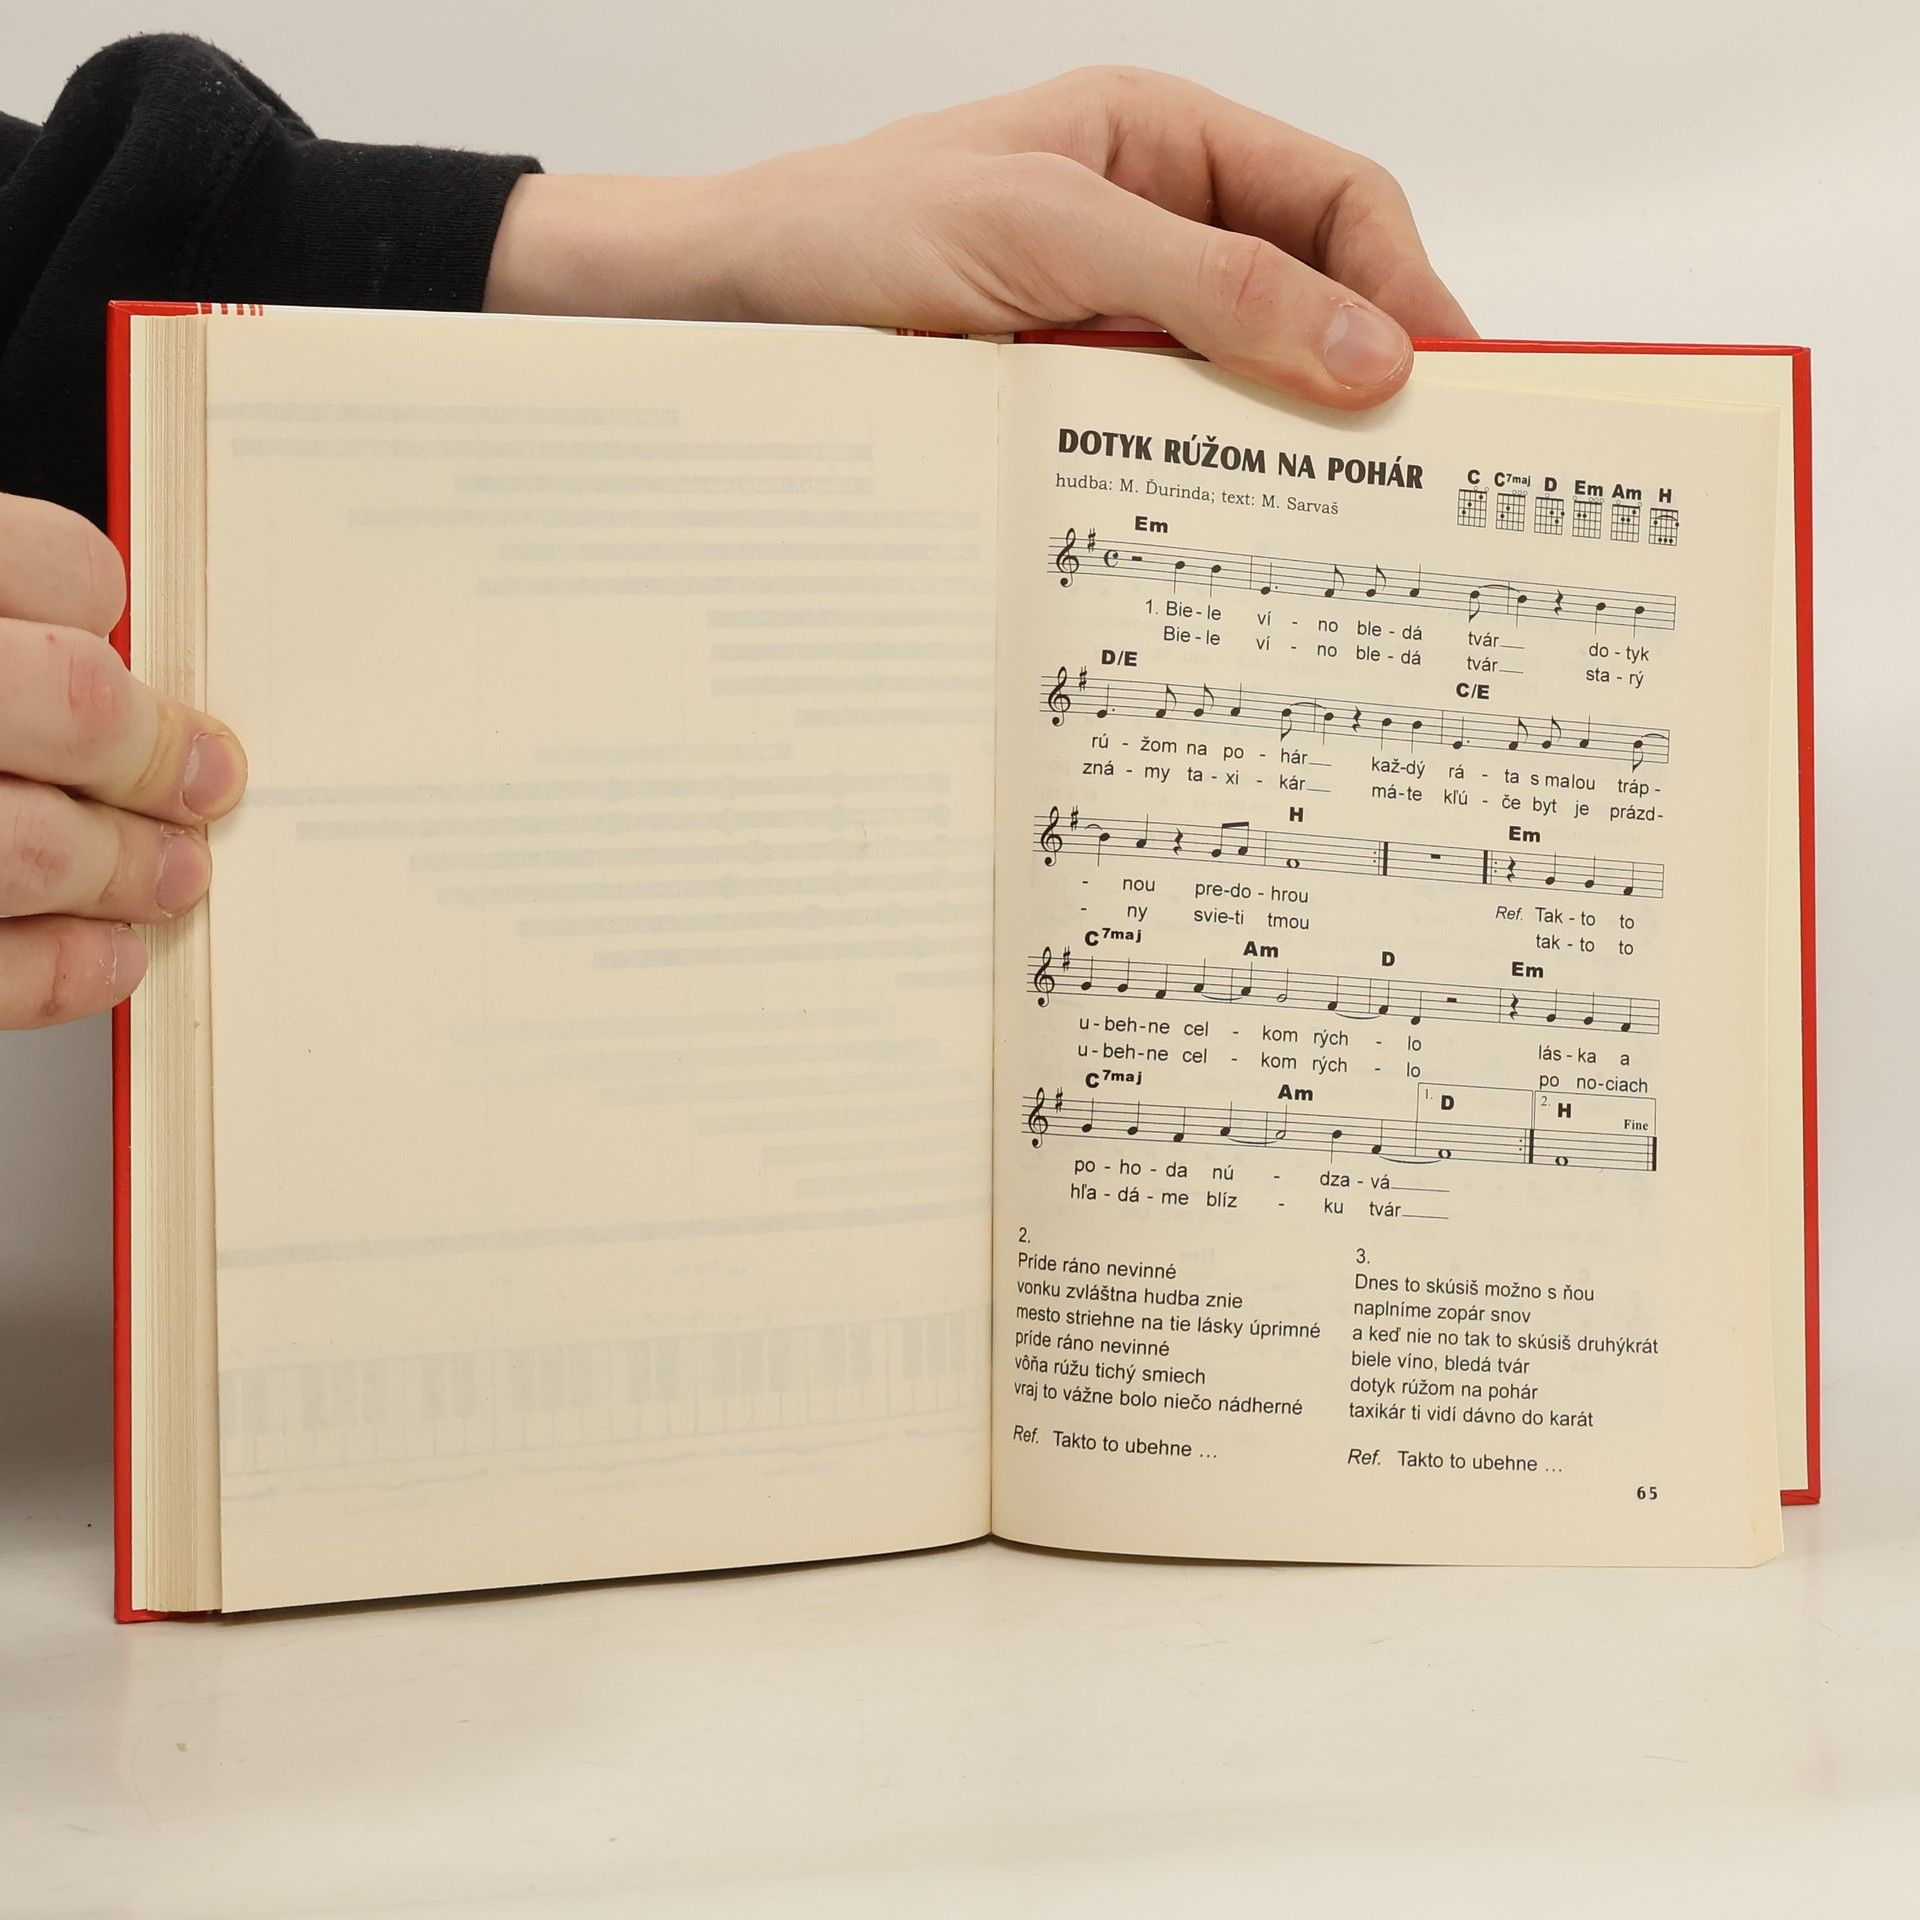 DOTYK RÚŽOM NA POHÁR
hudba: M. Ďurinda; text: M. Sarvaš
C C7maj D Em Am H
Em
1. Bie - le ví - no ble - dá tvár do - tyk
Bie - le ví - no ble - dá tvár sta - rý
D/E C/E
rú - žom na po - hár kaž-dý rá - ta s malou tráp -
zná - my ta - xi - kár má-te kľú - če byt je prázd-
H Em
- nou pre-do - hrou Ref. Tak - to to
- ny svie-ti tmou tak - to to
C7maj Am D Em
u - beh-ne cel - kom rých - lo lás - ka a
u - beh-ne cel - kom rých - lo po no-ciach
C7maj Am 1. D 2. H
Fine
po - ho - da nú - dza - vá
hľa - dá - me blíz - ku tvár
2.
Príde ráno nevinné
vonku zvláštna hudba znie
mesto striehne na tie lásky úprimné
príde ráno nevinné
vôňa rúžu tichý smiech
vraj to vážne bolo niečo nádherné
Ref. Takto to ubehne ...
3.
Dnes to skúsiš možno s ňou
naplníme zopár snov
a keď nie no tak to skúsiš druhýkrát
biele víno, bledá tvár
dotyk rúžom na pohár
taxikár ti vidí dávno do karát
Ref. Takto to ubehne ...
65